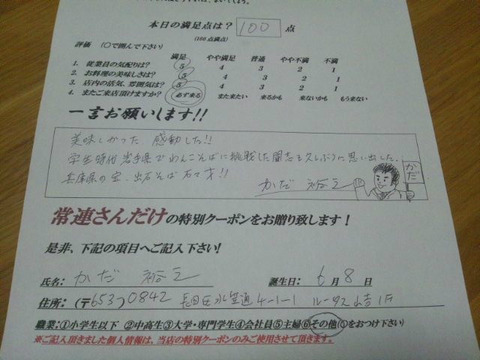 本日の満足点は? 100 点
(100点満点)
評価 (○で囲んで下さい) 満足 やや満足 普通 やや不満 不満
1. 従業員の気配りは? 5 4 3 2 1
2. お料理の美味しさは? 5 4 3 2 1
3. 店内の活気、雰囲気は? 5 4 3 2 1
4. またご来店頂けますか? 必ず来る また来たい 来るかも 来ないかも もう来ない
一言お願いします!!
美味しかった 感動した!!
学生時代岩手県でわんこそばに挑戦した闘志を久しぶりに思い出した。
兵庫県の宝、出石そば万才!!
かだ 裕之
かだ
常連さんだけの特別クーポンをお贈り致します!
是非、下記の項目へご記入下さい!
氏名: かだ 裕之 誕生日: 6月8日
住所: (〒653)0842 長田区水笠通4-1-1
職業:①小学生以下 ②中高生③大学・専門学生④会社員⑤主婦⑥その他(○をおつけ下さい)
※ご記入頂きました個人情報は、当店の特別クーポンのみご使用させて頂きます。